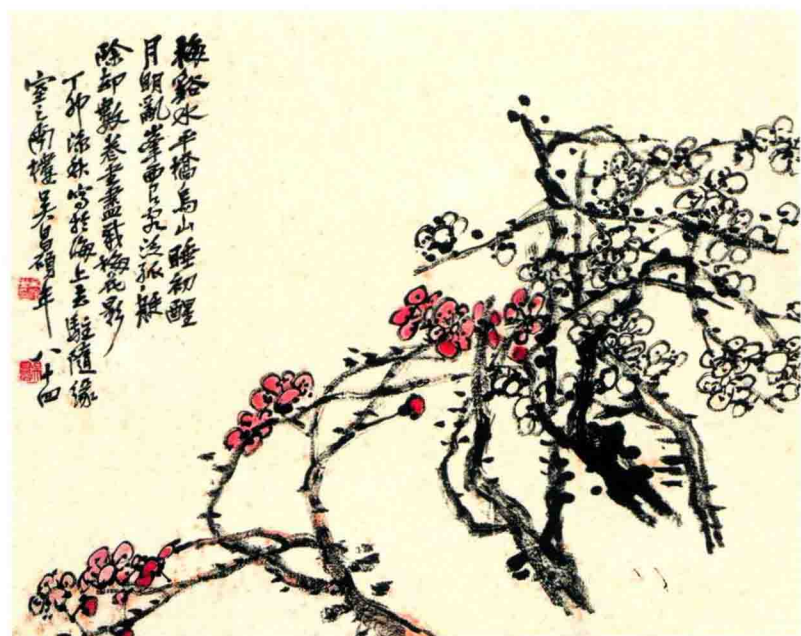 梅谿水平橋烏山睡初醒
月明亂峯西有客泛孤艇
除却數卷書盡載梅花影
丁卯深秋寫於海上去駐隨緣
室之南樓吴昌碩年八十四